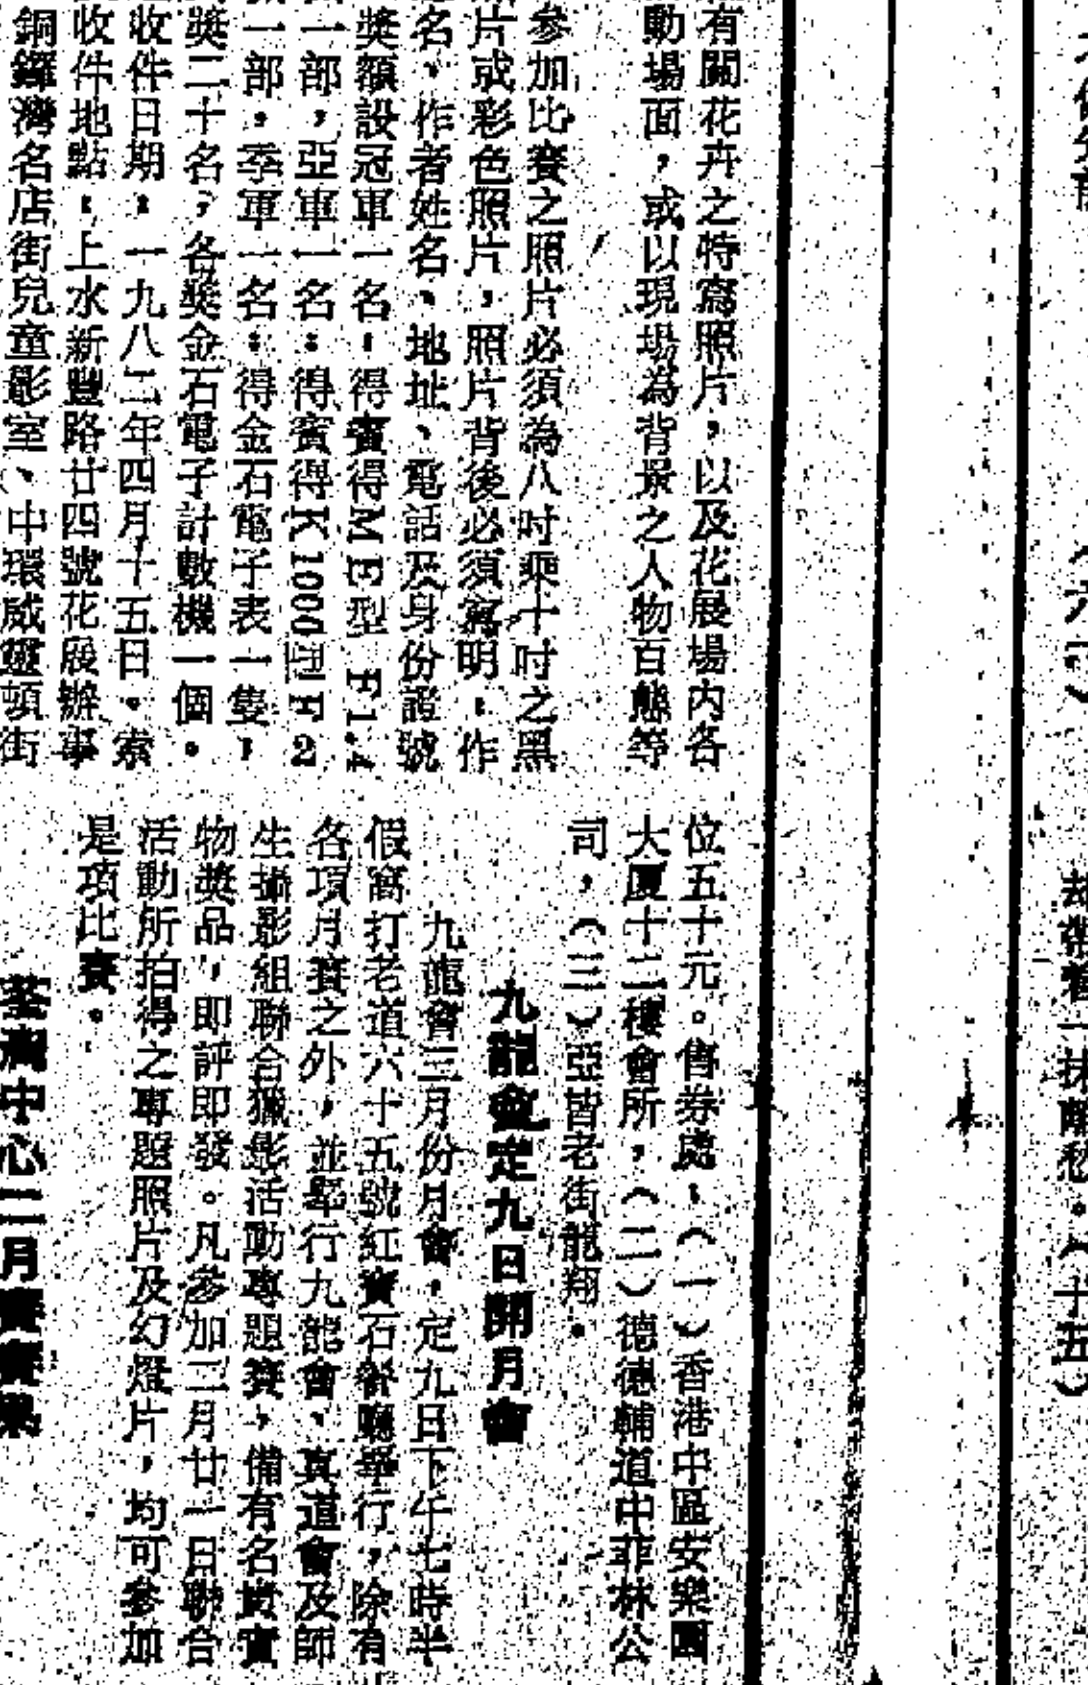 有關花卉之特寫照片，以及花展場內各
動場面，或以現場為背景之人物百態等
参加比賽之照片必須為八吋乘十吋之黑
片或彩色照片，照片背後必須寫明：作
名，作者姓名、地址、電話及身份證號
獎額設冠軍一名：得賓得ME型 F1.4
一部，亞軍一名：得賓得K1000型F2
一部，季軍一名：得金石電子表一隻，
獎二十名，各獎金石電子計數機一個。
收件日期：一九八二年四月十五日。索
收件地點：上水新豐路廿四號花展辦事
銅鑼灣名店街兒童影室、中環威靈頓街
位五十元。售券處：（一）香港中區安樂園
大厦十三樓會所，（二）德德輔道中菲林公
司，（三）亞皆老街龍翔。
九龍會定九日開月會
九龍會三月份月會，定九日下午七時半
假窩打老道六十五號紅寶石餐廳舉行，除有
各項月賽之外，並舉行九龍會、真道會及師
生攝影組聯合獵影活動專題賽，備有名貴實
物獎品，即評即發。凡參加二月廿一日聯合
活動所拍得之專題照片及幻燈片，均可參加
是項比賽。
荃灣中心二月賽賽果